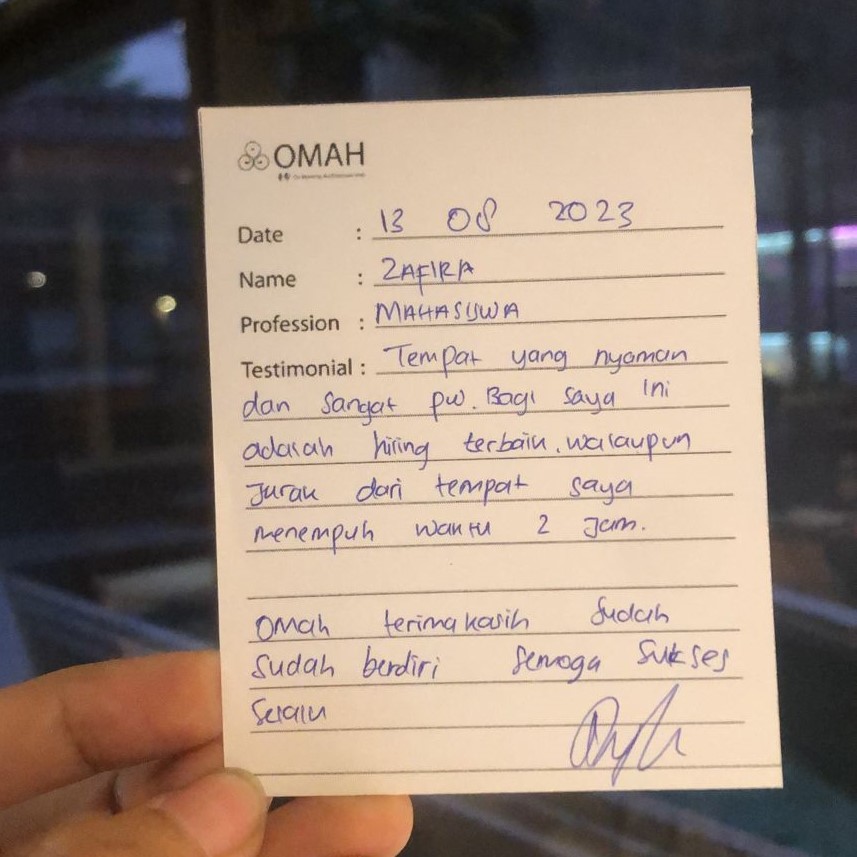 OMAH
Date : 13 08 2023
Name : ZAFIRA
Profession : MAHASISWA
Testimonial : Tempat yang nyaman
dan sangat pw. Bagi saya ini
adalah hiring terbaik. walaupun
Jarak dari tempat saya
menempuh waktu 2 Jam.
OMah terimakasih Sudah
Sudah berdiri Semoga Sukses
Selalu